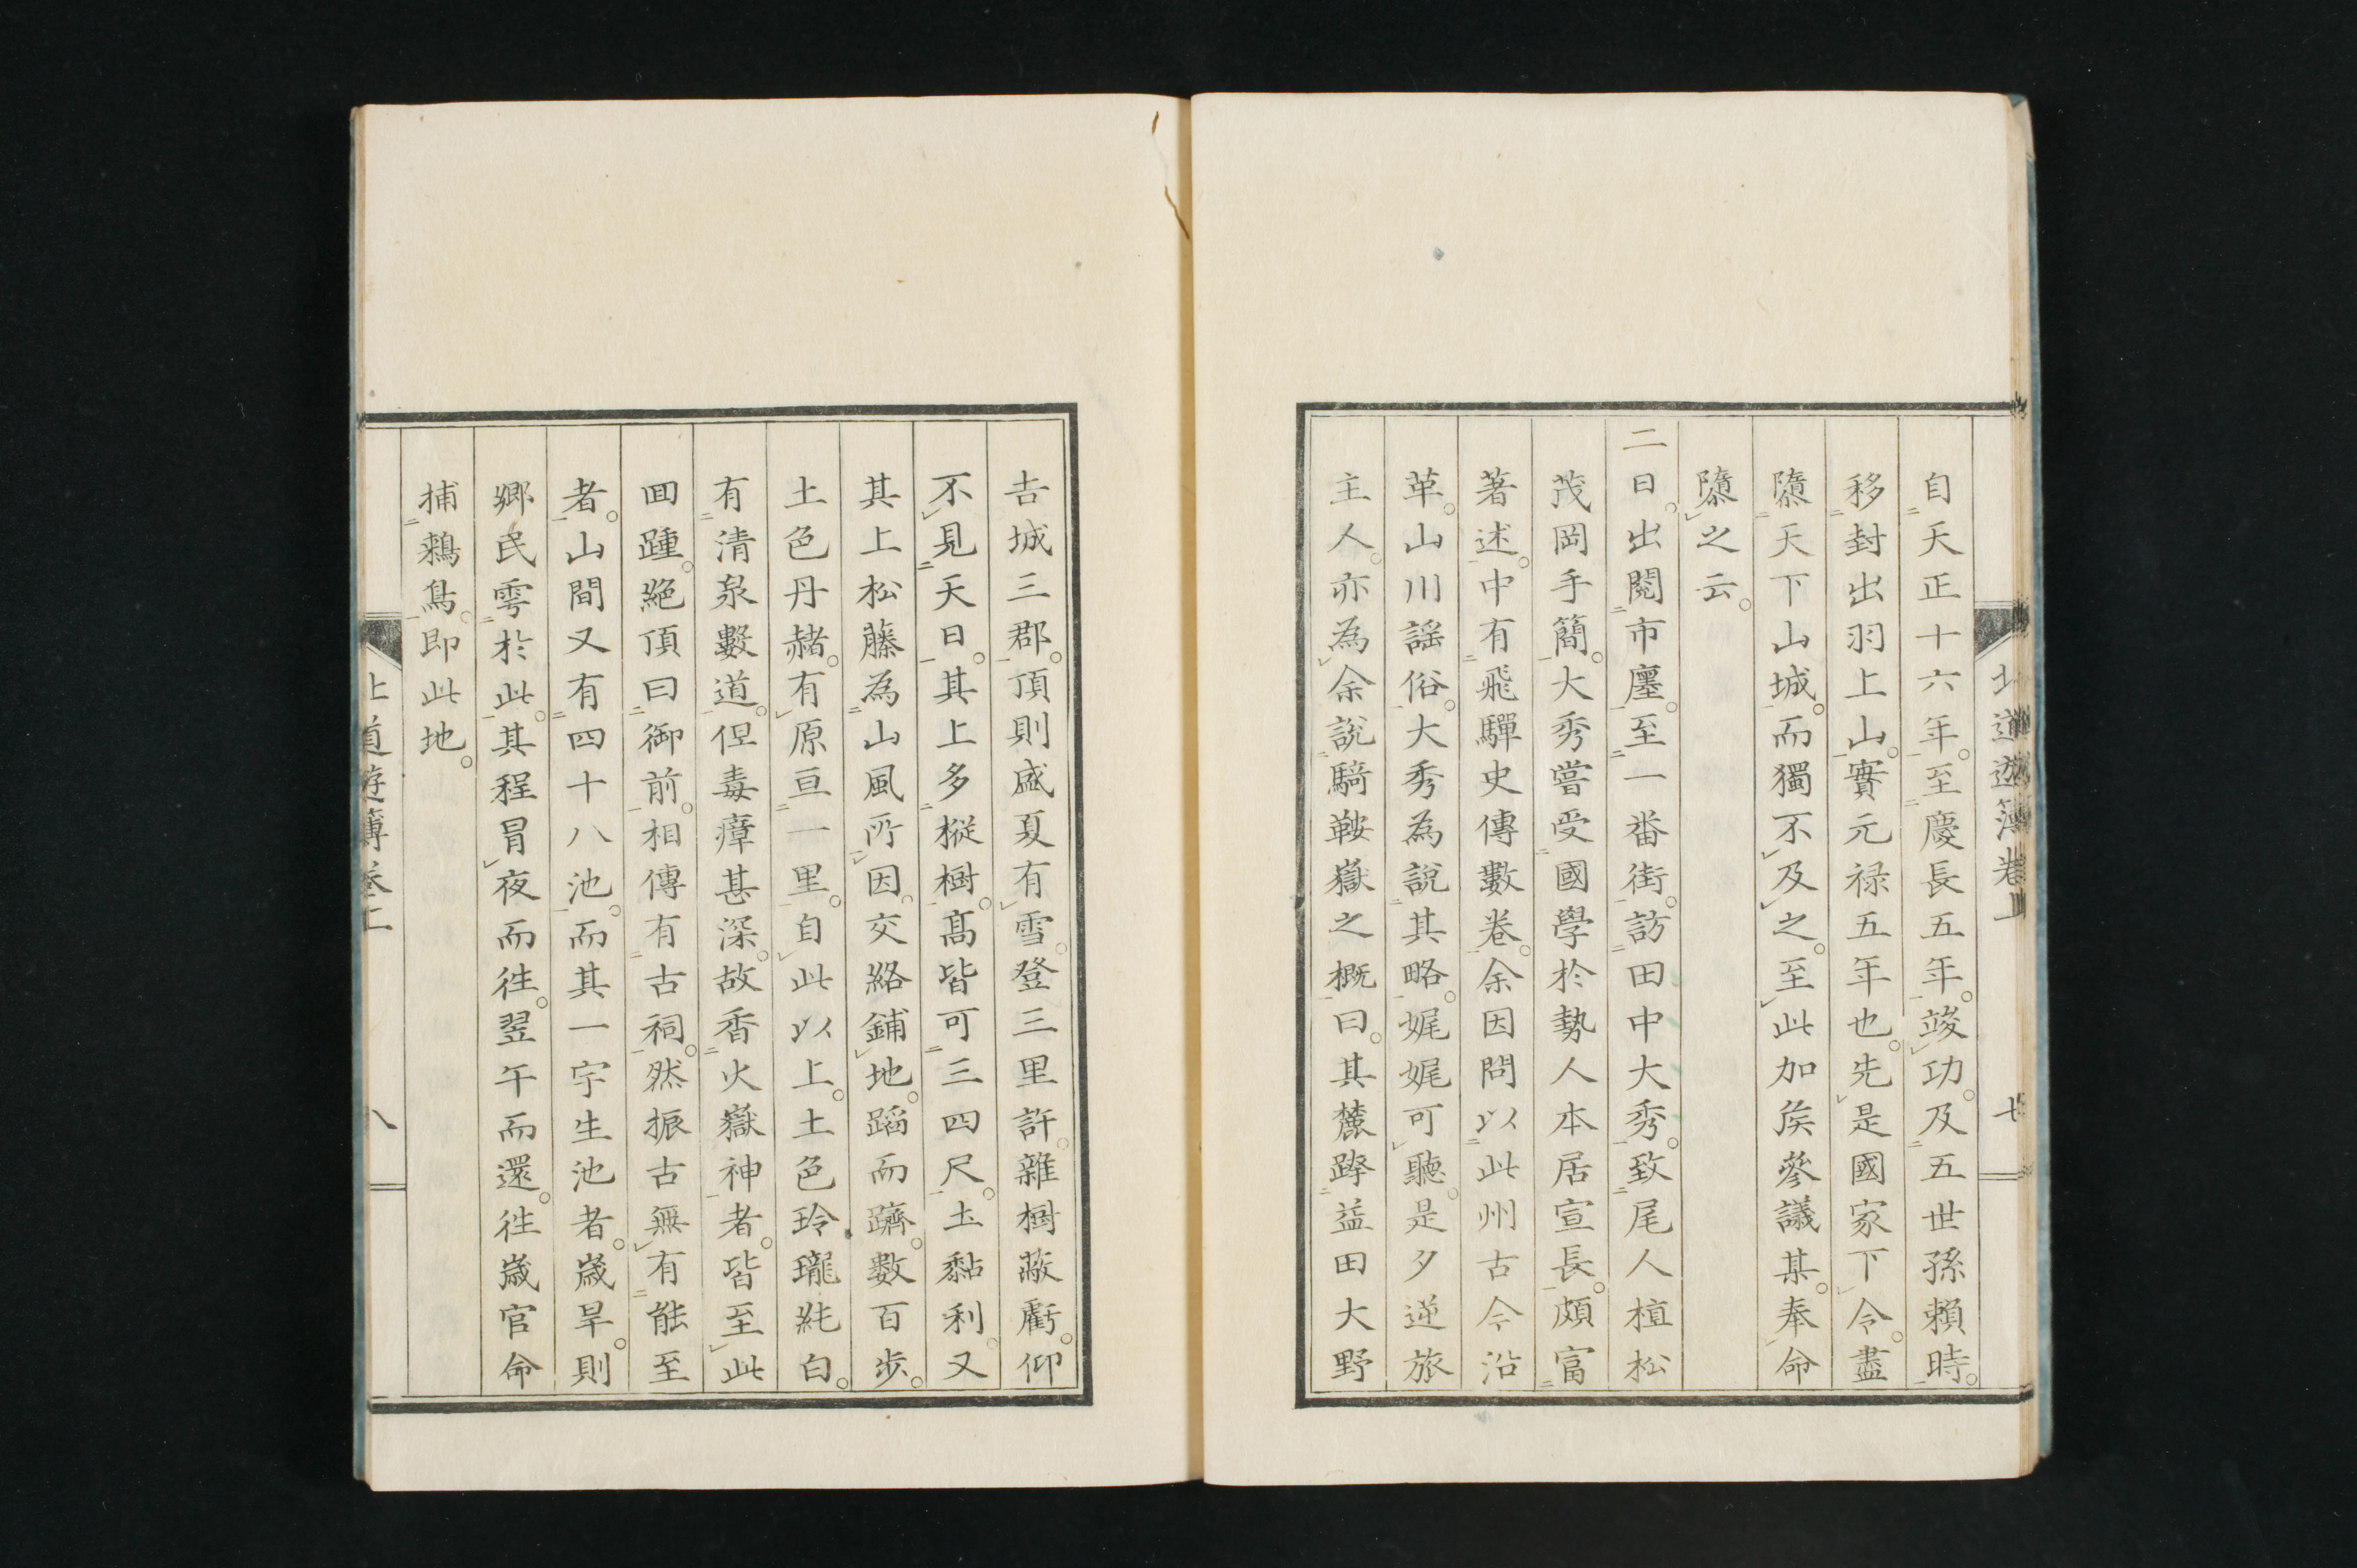 北道遊簿卷上
七
自天正十六年。至慶長五年。竣功。及五世孫賴時。
移封出羽上山。實元禄五年也。先是國家下令。盡
隳天下山城。而獨不及之。至此加侯參議某。奉命
隳之云。
二日。出閱市廛。至一番街。訪田中大秀。致尾人植松
茂岡手簡。大秀嘗受國學於勢人本居宣長。頗富
著述。中有飛驒史傳數卷。余因問以此州古今沿
革。山川謡俗。大秀為說其略。娓娓可聽。是夕逆旅
主人。亦為余說騎鞍嶽之概曰。其麓跨益田大野
吉城三郡。頂則盛夏有雪。登三里許。雜樹蔽虧。仰
不見天日。其上多樅樹。髙皆可三四尺。土黏利。又
其上松藤為山風所因。交絡鋪地。蹈而躋。數百歩。
土色丹赭。有原亘一里。自此以上。土色玲瓏純白。
有清泉數道。但毒瘴甚深。故香火嶽神者。皆至此
囬踵。絶頂曰御前。相傳有古祠。然振古無有能至
者。山間又有四十八池。而其一字生池者。歲旱。則
郷民雩於此。其程冒夜而往。翌午而還。往歲官命
捕鶇鳥。即此地。
北道遊簿卷上
八